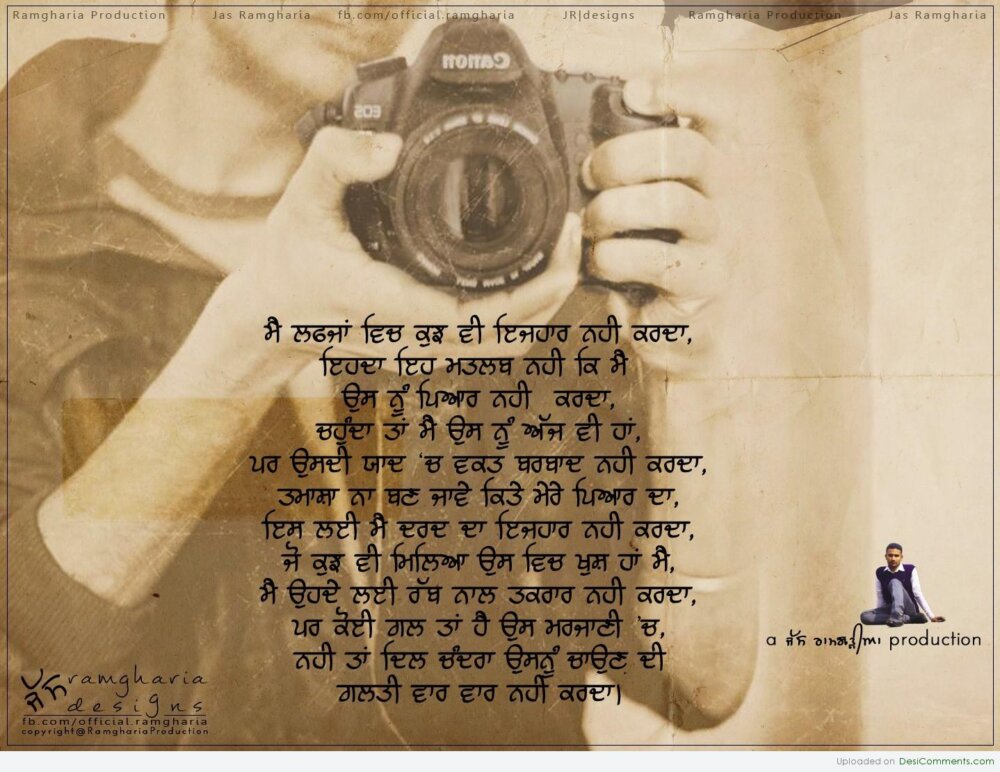 Ramgharia Production Jas Ramgharia fb.com/official.ramgharia JR|designs Ramgharia Production Jas Ramgharia
Canon
EOS
ਮੈ ਲਫਜਾਂ ਵਿਚ ਕੁਝ ਵੀ ਇਜਹਾਰ ਨਹੀ ਕਰਦਾ,
ਇਹਦਾ ਇਹ ਮਤਲਬ ਨਹੀ ਕਿ ਮੈ
ਉਸ ਨੂੰ ਪਿਆਰ ਨਹੀ ਕਰਦਾ,
ਚਹੁੰਦਾ ਤਾਂ ਮੈ ਉਸ ਨੂੰ ਅੱਜ ਵੀ ਹਾਂ,
ਪਰ ਉਸਦੀ ਯਾਦ 'ਚ ਵਕਤ ਬਰਬਾਦ ਨਹੀ ਕਰਦਾ,
ਤਮਾਸ਼ਾ ਨਾ ਬਣ ਜਾਵੇ ਕਿਤੇ ਮੇਰੇ ਪਿਆਰ ਦਾ,
ਇਸ ਲਈ ਮੈ ਦਰਦ ਦਾ ਇਜਹਾਰ ਨਹੀ ਕਰਦਾ,
ਜੋ ਕੁਝ ਵੀ ਮਿਲਿਆ ਉਸ ਵਿਚ ਖੁਸ਼ ਹਾਂ ਮੈ,
ਮੈ ਉਹਦੇ ਲਈ ਰੱਬ ਨਾਲ ਤਕਰਾਰ ਨਹੀ ਕਰਦਾ,
ਪਰ ਕੋਈ ਗਲ ਤਾਂ ਹੈ ਉਸ ਮਰਜਾਣੀ 'ਚ,
ਨਹੀ ਤਾਂ ਦਿਲ ਚੰਦਰਾ ਉਸਨੂੰ ਚਾਉਣ ਦੀ
ਗਲਤੀ ਵਾਰ ਵਾਰ ਨਹੀ ਕਰਦਾ।
a ਜੱਸ ਰਾਮਗੜ੍ਹੀਆ production
ਜੱਸ ramgharia
designs
fb.com/official.ramgharia
copyright@RamghariaProduction
Uploaded on DesiComments.com